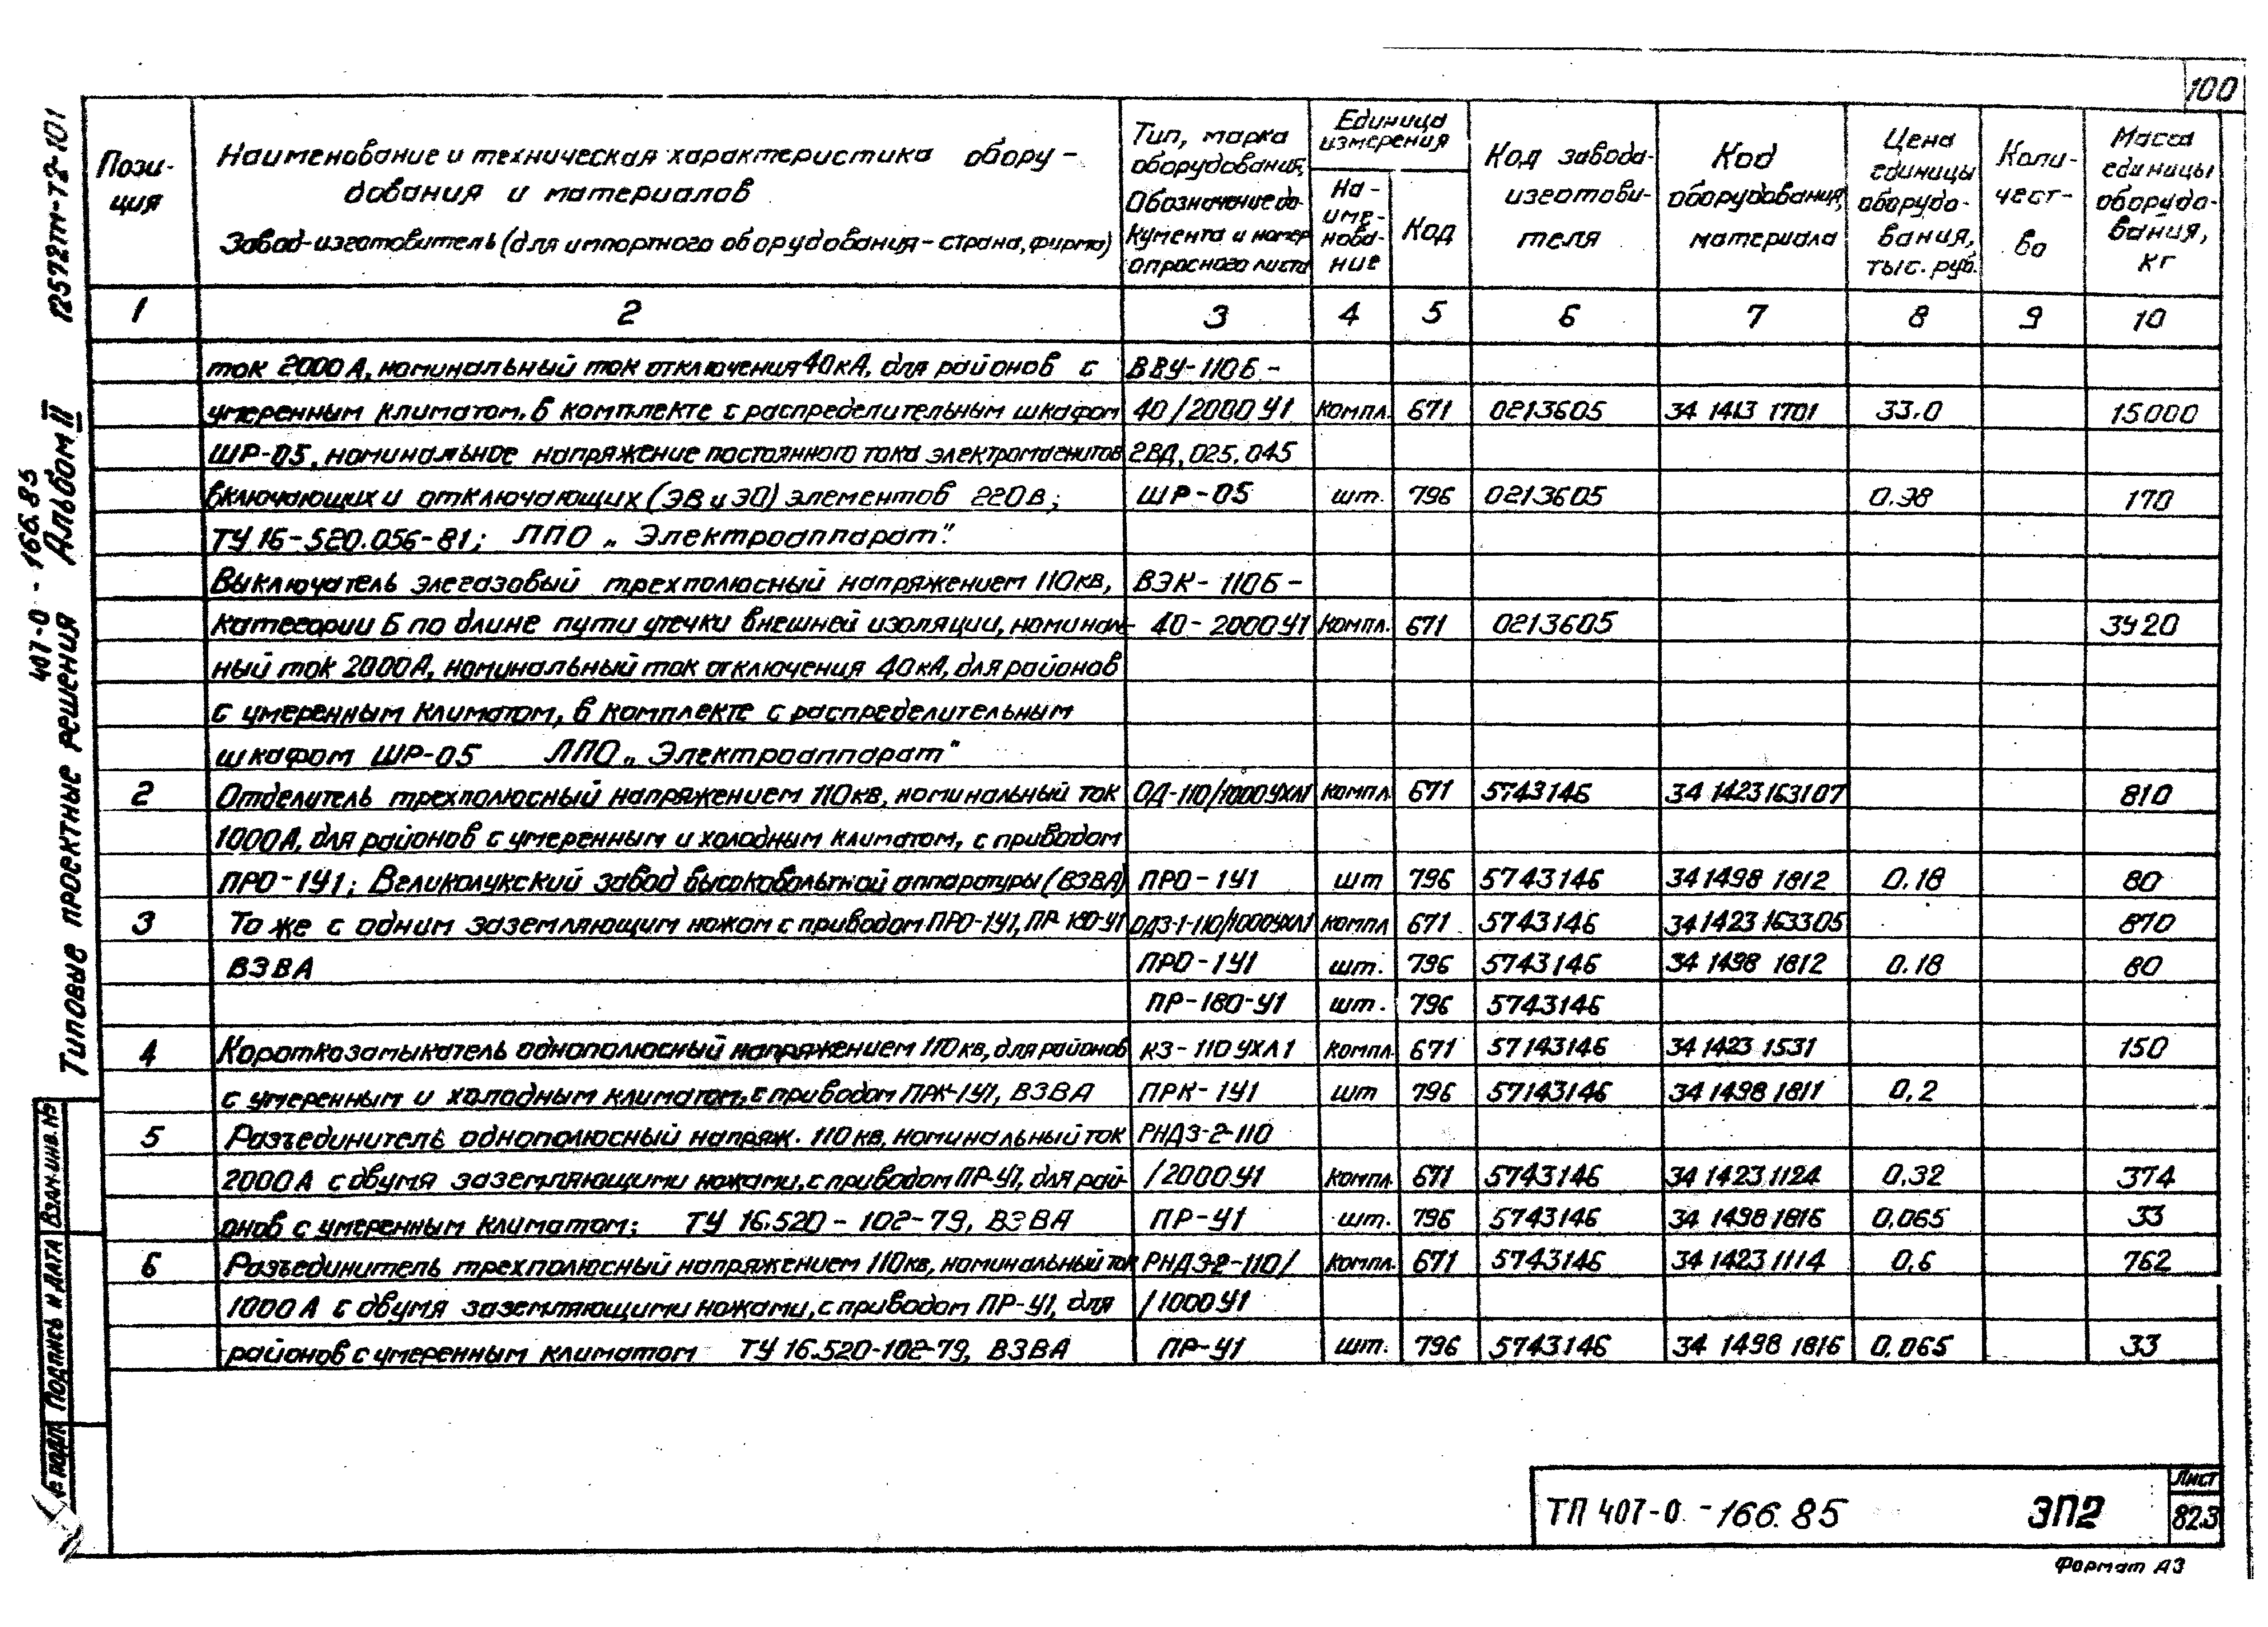 100
12572тм-т2-101
407-0-166.85
Альбом II
Типовые проектные решения
Взам.инв.№
Подпись и дата
№ подл.
Пози-
ция
Наименование и техническая характеристика обору-
дования и материалов
Завод-изготовитель (для импортного оборудования - страна, фирма)
Тип, марка
оборудования,
Обозначение до-
кумента и номер
опросного листа
Единица
измерения
На-
име-
нова-
ние
Код
Код завода-
изготови-
теля
Код
оборудования,
материала
Цена
единицы
оборудо-
вания,
тыс. руб.
Коли-
чест-
во
Масса
единицы
оборудо-
вания,
кг
1 2 3 4 5 6 7 8 9 10
ток 2000А, номинальный ток отключения 40кА, для районов с ВВУ-110Б-
умеренным климатом, в комплекте с распределительным шкафом 40/2000У1 компл. 671 0213605 34 1413 1701 33.0 15000
ШР-05, номинальное напряжение постоянного тока электромагнитов 2ВД.025.045
включающих и отключающих (ЭВ и ЭО) элементов 220В; ШР-05 шт. 796 0213605 0.98 170
ТУ 16-520.056-81; ЛПО „Электроаппарат".
Выключатель элегазовый трехполюсный напряжением 110кв, ВЭК-110Б-
категории Б по длине пути утечки внешней изоляции, номиналь- 40-2000У1 компл. 671 0213605 3420
ный ток 2000А, номинальный ток отключения 40кА, для районов
с умеренным климатом, в комплекте с распределительным
шкафом ШР-05 ЛПО „Электроаппарат"
2 Отделитель трехполюсный напряжением 110кв, номинальный ток ОД-110/1000УХЛ1 компл 671 5743146 34 1423163107 810
1000А, для районов с умеренным и холодным климатом, с приводом
ПРО-1У1; Великолукский завод высоковольтной аппаратуры (ВЗВА) ПРО-1У1 шт 796 5743146 34 1498 1812 0.18 80
3 То же с одним заземляющим ножом с приводом ПРО-1У1, ПР-180-У1 ОДЗ-1-110/1000УХЛ1 компл 671 5743146 34 1423 163305 870
ВЗВА ПРО-1У1 шт. 796 5743146 34 1498 1812 0.18 80
ПР-180-У1 шт. 796 5743146
4 Короткозамыкатель однополюсный напряжением 110кв, для районов КЗ-110УХЛ1 компл. 671 57143146 34 1423 1531 150
с умеренным и холодным климатом, с приводом ПРК-1У1, ВЗВА ПРК-1У1 шт 796 57143146 34 1498 1811 0,2
5 Разъединитель однополюсный напряж. 110кв, номинальный ток РНДЗ-2-110
2000А с двумя заземляющими ножами, с приводом ПР-У1, для рай- /2000У1 компл. 671 5743146 34 1423 1124 0,32 374
онов с умеренным климатом; ТУ 16.520-102-79, ВЗВА ПР-У1 шт. 796 5743146 34 1498 1816 0,065 33
6 Разъединитель трехполюсный напряжением 110кв, номинальный ток РНДЗ-2-110/ компл. 671 5743146 34 1423 1114 0,6 762
1000А с двумя заземляющими ножами, с приводом ПР-У1, для /1000У1
районов с умеренным климатом ТУ 16.520-102-79, ВЗВА ПР-У1 шт. 796 5743146 34 1498 1816 0,065 33
ТП 407-0-166.85 ЭП2
Лист
82.3
Формат А3